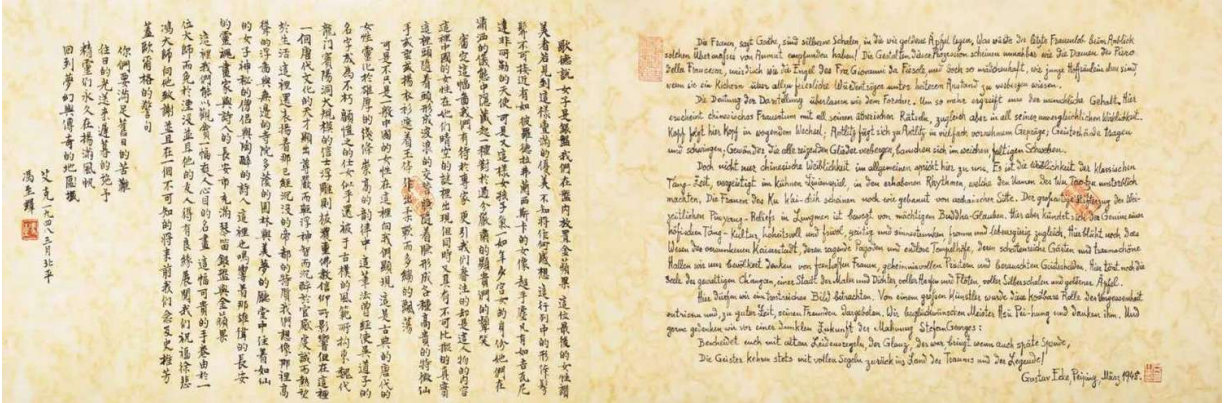 Die Frauen, sagt Goethe, sind silberne Schalen in die wir goldene Äpfel legen. Was würde der letzte Frauenlob beim Anblick
solchen Übermasses von Anmut empfunden haben! Die Gestalten dieser Prozession scheinen unnahbar wie die Damen des Piero
della Francesca, und wie die Engel des Fra Giovanni da Fiesole und doch so mädchenhaft, wie junge Hoffräulein eben sind,
wenn sie ein Kichern über allzu feierliche Würdenträger unter heiterem Anstand zu verbergen wissen.
Die Deutung der Darstellung überlassen wir dem Forscher. Um so mehr ergreift uns der menschliche Gehalt. Hier
erscheint chinesisches Frauentum mit all seinen ätherischen Rätseln, zugleich aber in all seiner unvergleichlichen Wirklichkeit.
Kopf folgt hier Kopf in wogendem Wechsel, Antlitz fügt sich zu Antlitz in vielfach vornehmem Gepräge; Geisterhände tragen
und schwingen, Gewänder, die alle zeigenden Glieder verbergen, bauschen sich im weichen faltigen Schweben.
Doch nicht nur chinesische Weiblichkeit im allgemeinen spricht hier zu uns. Es ist die Weiblichkeit der klassischen
Tang-Zeit, vergeistigt im kühnen Linienspiel, in den erhabenen Rhythmen, welche den Namen des Wu Tao-tze unsterblich
machten. Die Frauen des Ku Kai-chih scheinen noch wie gebannt von archaischer Sitte. Der großartige
zeitlichen Pinyang-Reliefs in Lungmen ist bewegt von mächtigem Buddha-Glauben. Hier aber kündet sich das Genius einer
höfischen Tang-Kultur, hoheitsvoll und frivol, geistig und sinnestrunken, fromm und lebensgierig zugleich. Hier blüht noch das
Wesen der versunkenen Kaiserstadt, deren ragende Pagoden und endlose Tempelhöfe, deren schattenreiche Gärten und traumschöne
Hallen wir uns bevölkert denken von feenhaften Frauen, geheimnisvollen Priestern und berauschten Geisteshelden. Hier tönt noch die
Seele des gewaltigen Changan, einer Stadt der Maler und Dichter, voller Harfen und Flöten, voller Silberschalen und goldener Äpfel.
Hier dürfen wir ein trostreiches Bild betrachten. Von einem großen Künstler wurde diese kostbare Rolle der Vergessenheit
entrissen und, zu guter Zeit, seinen Freunden dargeboten. Wir beglückwünschen Meister Hsü Pei-hung und danken ihm. Und
gerne gedenken wir vor einer dunklen Zukunft der Mahnung Stefan Georges:
Bescheidet euch mit alten Leidensregeln, der Glanz, der war, bringt wenn auch späte Spende,
Die Geister kehren stets mit vollen Segeln zurück ins Land des Traums und der Legende!
Gustav Ecke, Peiping, März 1948.
歌德說女子是銀盤我們在盤內放置金蘋果這位最後的女性讚
美者若見到這樣豐滿的優美不知將作何感想這行列中的形體髣
髴不可接近有如彼羅德拉弗蘭西斯卡的女像起手處又有如吉瓦尼
達非耶勒的天使可是又這樣女孩子氣一如年少宮女的身份她們在
瀟洒的儀態中隱藏起一種對於過分嚴肅的顯貴們的訕笑
審定這幅畫我們有待於專家更引我們專注的却是這人物的內容
這裡中國的女性在她們的謎裡出現但同時又具有不可比擬的真實
這裡頭隨着頭形成波浪的交替臉隨着臉形成各種高貴的特徵仙
手或靈或揚衣衫遮着玉體飛出柔軟而多縐的飄蕩
可是不只是一般中國的女性在這裡向我們顯現這是古典的唐代的
女性靈化於雄厚的線條崇高的韻律中這筆法曾經使吳道子的
名字成為不朽顧愷之的仕女似乎還被于古樸的風範所拘束魏代
龍門賓陽洞大規模的信士浮雕則被嚴重佛教信仰所影響但在這裡
一個唐代文化的天才顯出尊嚴而輕浮神智而沉醉於官感虔誠而熱望
於生活這裡還表揚着那已經沉沒的帝都的特質我們想像那裡高
聳的浮圖與無邊的寺院多蔭的園林與美夢的廳堂中住着如仙
的女子神秘的僧侶與陶醉的詩人這裡也鳴響着那雄偉的長安
的靈魂畫家與詩人的長安市充滿琴笛銀盤與金蘋果
這裡我們能以觀賞一幅爽人心目的名畫這幅可貴的手卷由於一
位大師而免於湮沒並且他的友人得有良緣展閱我們祝福徐悲
鴻大師向他致謝並且在一個不可知的將來前我們念及史推芳
蓋歐爾格的警句
你們要滿足舊日的苦難
往日的光送來遲暮的施予
精靈們永久在揚滿風帆
回到夢幻與傳奇的地區
艾克一九四八三月北平
馮至譯